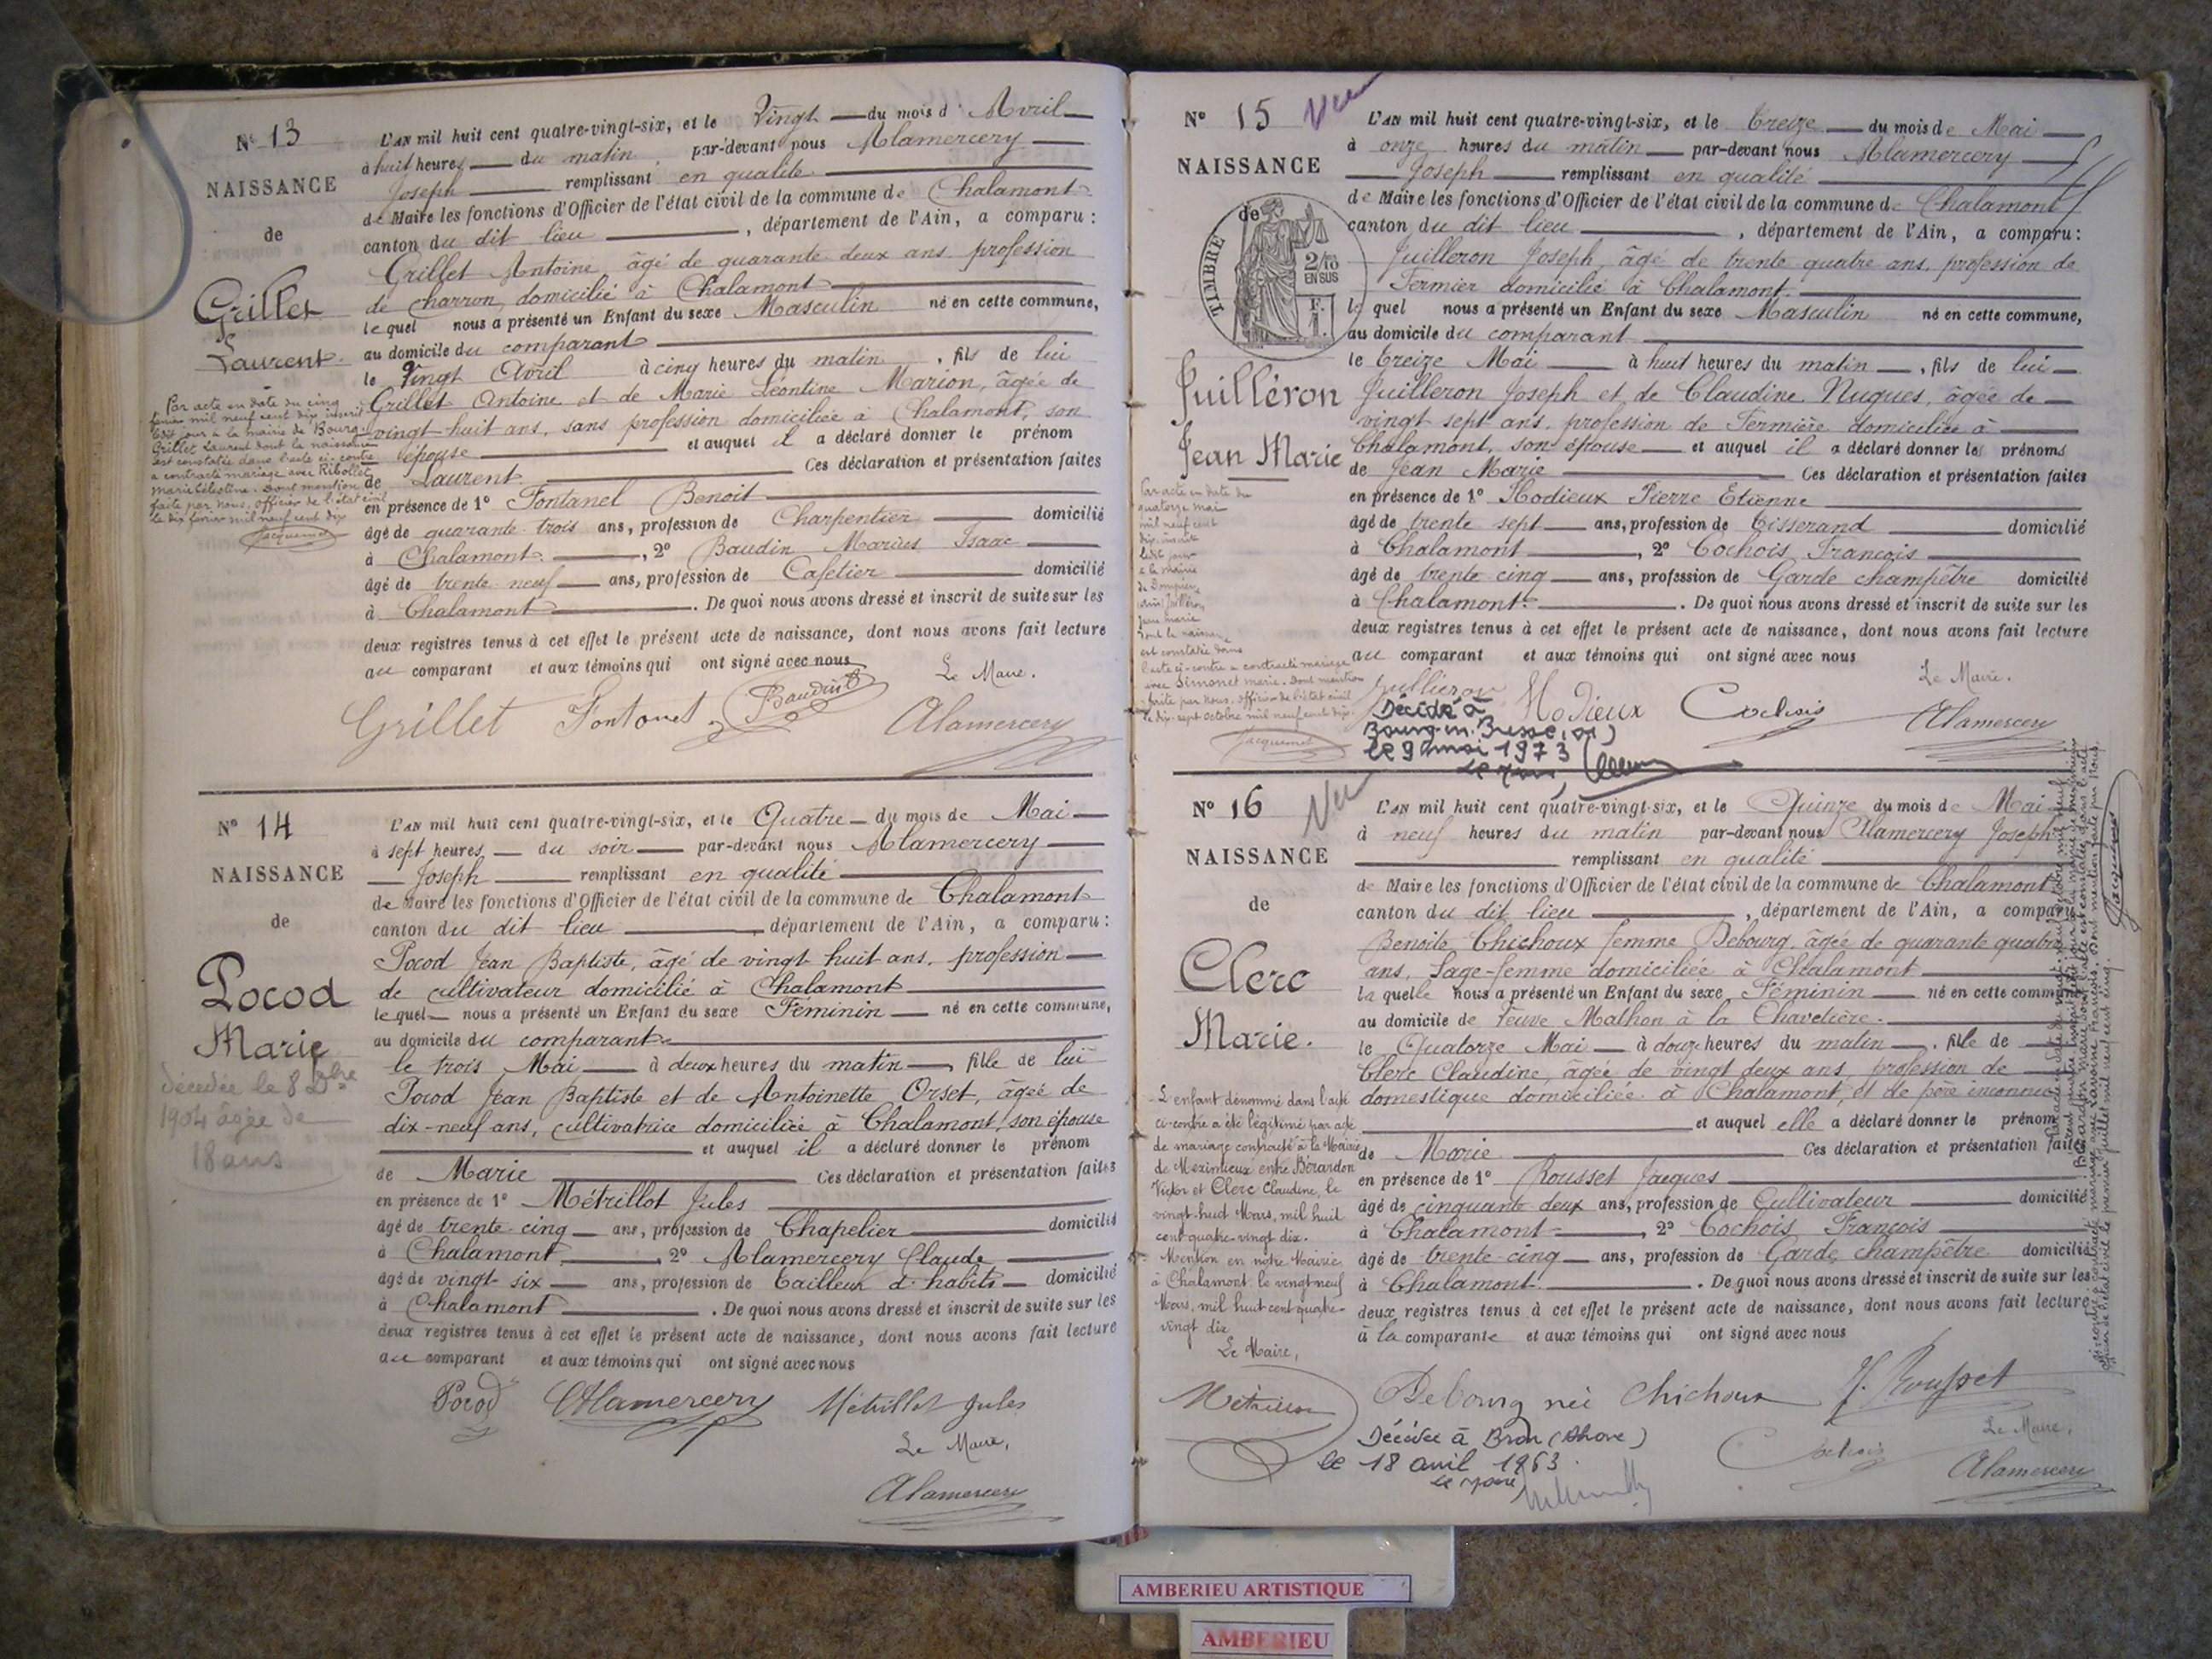 N° 13
NAISSANCE
de
Grillet
Laurent
Par acte en date du cinq
février mil neuf cent dix inscrit
ledit jour à la mairie de Bourg
Grillet Laurent dont la naissance
est constatée dans l'acte ci-contre
a contracté mariage avec Ribollet
Marie Célestine. Dont mention
faite par nous, officier de l'état civil
le dix février mil neuf cent dix
Jacquemet
L'AN mil huit cent quatre-vingt-six, et le Vingt du mois d'Avril
à huit heures du matin, par-devant nous Alamercery
Joseph remplissant en qualité
de Maire les fonctions d'Officier de l'état civil de la commune de Chalamont
canton du dit lieu, département de l'Ain, a comparu :
Grillet Antoine âgé de quarante deux ans profession
de charron, domicilié à Chalamont
lequel nous a présenté un Enfant du sexe Masculin né en cette commune,
au domicile du comparant
le Vingt Avril à cinq heures du matin, fils de lui
Grillet Antoine et de Marie Léontine Marion, âgée de
vingt-huit ans, sans profession domiciliée à Chalamont, son
épouse et auquel il a déclaré donner le prénom
de Laurent. Ces déclaration et présentation faites
en présence de 1° Fontanel Benoit
âgé de quarante trois ans, profession de Charpentier domicilié
à Chalamont, 2° Baudin Marius Isaac
âgé de trente neuf ans, profession de Cafetier domicilié
à Chalamont. De quoi nous avons dressé et inscrit de suite sur les
deux registres tenus à cet effet le présent acte de naissance, dont nous avons fait lecture
au comparant et aux témoins qui ont signé avec nous
Le Maire.
Grillet Fontanel Baudin Alamercery
N° 14
NAISSANCE
de
Pocod
Marie
décédée le 8 Dbre
1904 âgée de
18 ans
L'AN mil huit cent quatre-vingt-six, et le Quatre du mois de Mai
à sept heures du soir par-devant nous Alamercery
Joseph remplissant en qualité
de Maire les fonctions d'Officier de l'état civil de la commune de Chalamont
canton du dit lieu, département de l'Ain, a comparu :
Pocod Jean Baptiste, âgé de vingt huit ans, profession
de cultivateur domicilié à Chalamont
lequel nous a présenté un Enfant du sexe Féminin né en cette commune,
au domicile du comparant
le trois Mai à deux heures du matin, fille de lui
Pocod Jean Baptiste et de Antoinette Orset, âgée de
dix-neuf ans, cultivatrice domiciliée à Chalamont, son épouse
et auquel il a déclaré donner le prénom
de Marie Ces déclaration et présentation faites
en présence de 1° Métrillot Jules
âgé de trente cinq ans, profession de Chapelier domicilié
à Chalamont, 2° Alamercery Claude
âgé de vingt six ans, profession de Tailleur d'habits domicilié
à Chalamont. De quoi nous avons dressé et inscrit de suite sur les
deux registres tenus à cet effet le présent acte de naissance, dont nous avons fait lecture
au comparant et aux témoins qui ont signé avec nous
Pocod CAlamercery Métrillot Jules
Le Maire,
Alamercery
N° 15 Vu
NAISSANCE
de
TIMBRE
2/10
EN SUS
Juilléron
Jean Marie
Par acte en date du
quatorze mai
mil neuf cent
dix, inscrit
ledit jour
à la mairie
de Dompierre
Juilléron
Jean Marie
dont la naissance
est constatée dans
l'acte ci-contre a contracté mariage
avec Simonet Marie. Dont mention
faite par nous, officier de l'état civil
le dix-sept octobre mil neuf cent dix.
Jacquemet
L'AN mil huit cent quatre-vingt-six, et le Treize du mois de Mai
à onze heures du matin par-devant nous Alamercery
Joseph remplissant en qualité
de Maire les fonctions d'Officier de l'état civil de la commune de Chalamont
canton du dit lieu, département de l'Ain, a comparu :
Juilleron Joseph, âgé de trente quatre ans, profession de
Fermier domicilié à Chalamont.
lequel nous a présenté un Enfant du sexe Masculin né en cette commune,
au domicile du comparant
le treize Mai à huit heures du matin, fils de lui
Juilleron Joseph et de Claudine Nugues, âgée de
vingt sept ans, profession de Fermière domiciliée à
Chalamont, son épouse et auquel il a déclaré donner les prénoms
de Jean Marie Ces déclaration et présentation faites
en présence de 1° Hodieux Pierre Etienne
âgé de trente sept ans, profession de Tisserand domicilié
à Chalamont, 2° Cochois François
âgé de trente cinq ans, profession de Garde champêtre domicilié
à Chalamont. De quoi nous avons dressé et inscrit de suite sur les
deux registres tenus à cet effet le présent acte de naissance, dont nous avons fait lecture
au comparant et aux témoins qui ont signé avec nous
Le Maire.
Juilleron Hodieux Cochois Alamercery
Décédé à
Bourg-en-Bresse (01)
le 9 mai 1973
Le Maire
N° 16 Vu
NAISSANCE
de
Clerc
Marie.
L'enfant dénommé dans l'acte
ci-contre a été légitimé par acte
de mariage contracté à la Mairie
de Meximieux entre Bérardon
Victor et Clerc Claudine, le
vingt-huit Mars, mil huit
cent quatre-vingt dix.
Mention en notre Mairie
à Chalamont le vingt neuf
Mars, mil huit cent quatre-
vingt dix
Le Maire,
L'AN mil huit cent quatre-vingt-six, et le Quinze du mois de Mai
à neuf heures du matin par-devant nous Alamercery Joseph
remplissant en qualité
de Maire les fonctions d'Officier de l'état civil de la commune de Chalamont
canton du dit lieu, département de l'Ain, a comparu
Benoite Chichoux femme Debourg, âgée de quarante quatre
ans, Sage-femme domiciliée à Chalamont
laquelle nous a présenté un Enfant du sexe Féminin né en cette commune
au domicile de Veuve Mathon à la Chavetière.
le Quatorze Mai à douze heures du matin, fille de
Clerc Claudine, âgée de vingt deux ans, profession de
domestique domiciliée à Chalamont, et de père inconnu
et auquel elle a déclaré donner le prénom
de Marie Ces déclaration et présentation faites
en présence de 1° Rousset Jacques
âgé de cinquante deux ans, profession de Cultivateur domicilié
à Chalamont, 2° Cochois François
âgé de trente-cinq ans, profession de Garde champêtre domicilié
à Chalamont. De quoi nous avons dressé et inscrit de suite sur les
deux registres tenus à cet effet le présent acte de naissance, dont nous avons fait lecture
à la comparante et aux témoins qui ont signé avec nous
Debourg née Chichoux J. Rousset
Décédée à Bron (Rhône)
le 18 avril 1963.
Le Maire
Cochois
Le Maire,
Alamercery
Jacquemet
AMBERIEU ARTISTIQUE
AMBERIEU